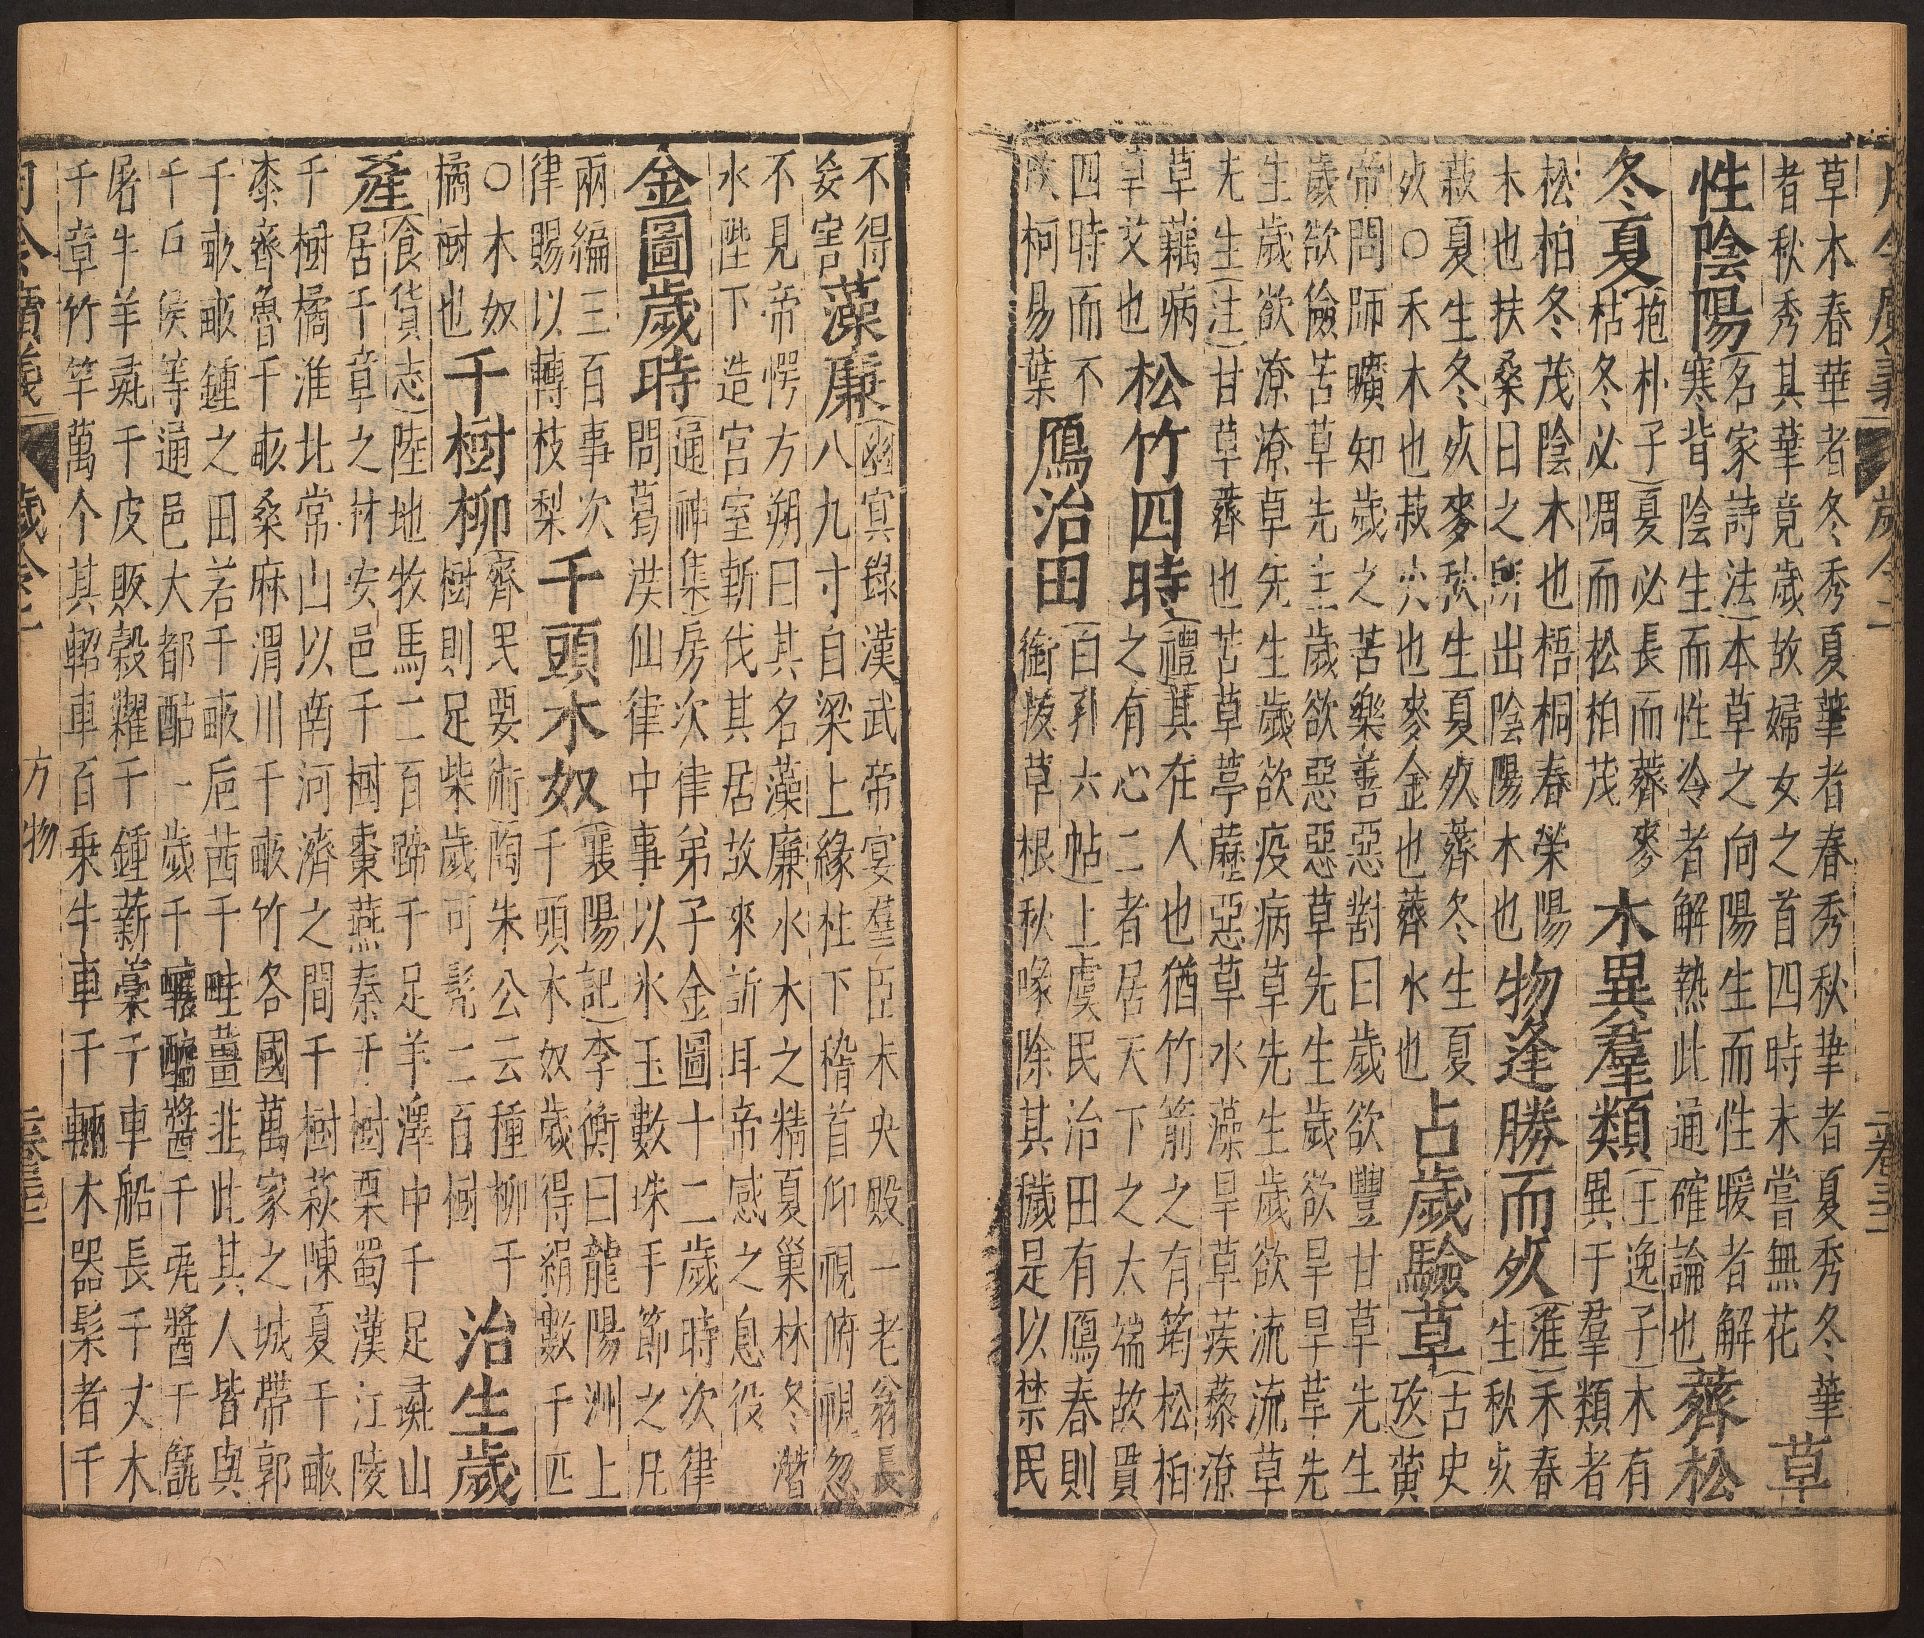 月令廣義 歲令二
草木春華者冬秀夏華者春秀秋華者夏秀冬華
者秋秀其華竟歲故婦女之首四時未嘗無花
草
性陰陽
(名家詩法)本草之向陽生而性暖者解
寒背陰生而性冷者解熱此通確論也
薺松
冬夏
(抱朴子)夏必長而薺麥
枯冬必凋而松柏茂
木異羣類
(王逸子)木有
異于羣類者
松柏冬茂陰木也梧桐春榮陽
木也扶桑日之所出陰陽木也
物逢勝而死
(淮)禾春
生秋死
菽夏生冬死麥秋生夏死薺冬生夏
死○禾木也菽火也麥金也薺水也
占歲驗草
(古史
攷)黃
帝問師曠知歲之苦樂善惡對曰歲欲豐甘草先生
歲欲儉苦草先生歲欲惡惡草先生歲欲旱旱草先
生歲欲潦潦草先生歲欲疫病草先生歲欲流流草
先生(注)甘草薺也苦草葶藶惡草水藻旱草蒺藜潦
草藕病
草艾也
松竹四時
(禮)其在人也猶竹箭之有筠松柏
之有心二者居天下之大端故貫
四時而不
改柯易葉
鴈治田
(白孔六帖)上虞民治田有鴈春則
銜拔草根秋啄除其穢是以禁民
不得
妄害
藻廉
(幽冥錄)漢武帝宴羣臣未央殿一老翁長
八九寸自梁上緣柱下稽首仰視俯視忽
不見帝愕方朔曰其名藻廉水木之精夏巢林冬潛
水陛下造宮室斬伐其居故來訴耳帝感之息役
金圖歲時
(通神集)房次律弟子金圖十二歲時次律
問葛洪仙律中事以氷玉數珠手節之凡
兩編三百事次
律賜以轉枝梨
千頭木奴
(襄陽記)李衡曰龍陽洲上
千頭木奴歲得絹數千匹
○木奴
橘樹也
千樹柳
(齊民要術)陶朱公云種柳千
樹則足柴歲可髡二百樹
治生歲
產
(食貨志)陸地牧馬二百蹄千足羊澤中千足彘山
居千章之材安邑千樹棗燕秦千樹栗蜀漢江陵
千樹橘淮北常山以南河濟之間千樹萩陳夏千畝
桼齊魯千畝桑麻渭川千畝竹各國萬家之城帶郭
千畝畝鍾之田若千畝巵茜千畦薑韭此其人皆與
千戶侯等通邑大都酤一歲千釀醯醬千瓨醬千甔
屠牛羊彘千皮販穀糶千鍾薪藁千車船長千丈木
千章竹竿萬个其軺車百乘牛車千輛木器髹者千
月令廣義 歲令二 方物